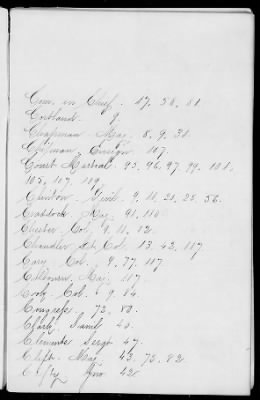 Com. in Chief. 47. 50. 51.
Cortlandt 9.
Chapman Maj. 8. 9. 30.
Chipman, Ensign 107.
Court Martial. 95. 96. 97. 99. 101.
105. 107. 109.
Clinton Genl. 9. 10. 20. 25. 56.
Craddock Maj. 91. 110.
Chester Col. 9. 11. 82.
Chandler Lt. Col. 13. 42. 117
Cary Col. 9. 77. 117
Colbourn. Maj. 117.
Cook Col. 9. 84.
Congress. 73. 80.
Clark Saml 40.
Clements Sergt 47.
Clift. Maj 43. 73. 82.
Jno. 42